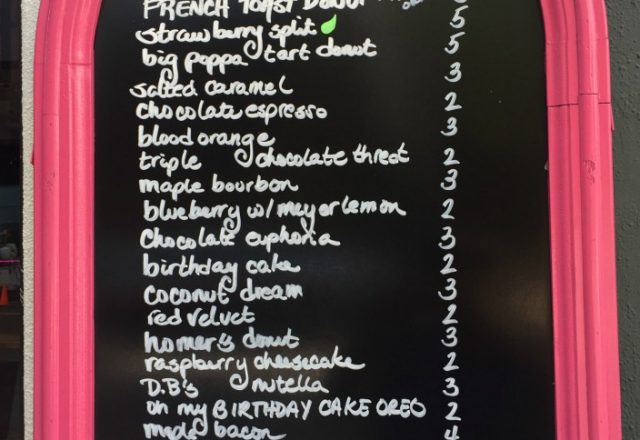 FRENCH TOAST DONUT
strawberry split 5
big poppa tart donut 5
salted caramel 3
chocolate espresso 2
blood orange 3
triple chocolate threat 2
maple bourbon 3
blueberry w/ meyer lemon 2
chocolate euphoria 3
birthday cake 2
coconut dream 3
red velvet 2
homer's donut 3
raspberry cheesecake 2
D.B's nutella 3
oh my BIRTHDAY CAKE OREO 2
maple bacon 4